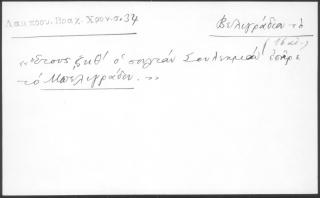 Λαμπρου. Βραχ. Χρον. σ. 34
Βελιγράδιον τό
(16 αἰ.)
«Ἔτους ζκθ' ὁ σουλτάν Σουλεημάν ἐπῆρε
τό Μπελιγράδιν.»